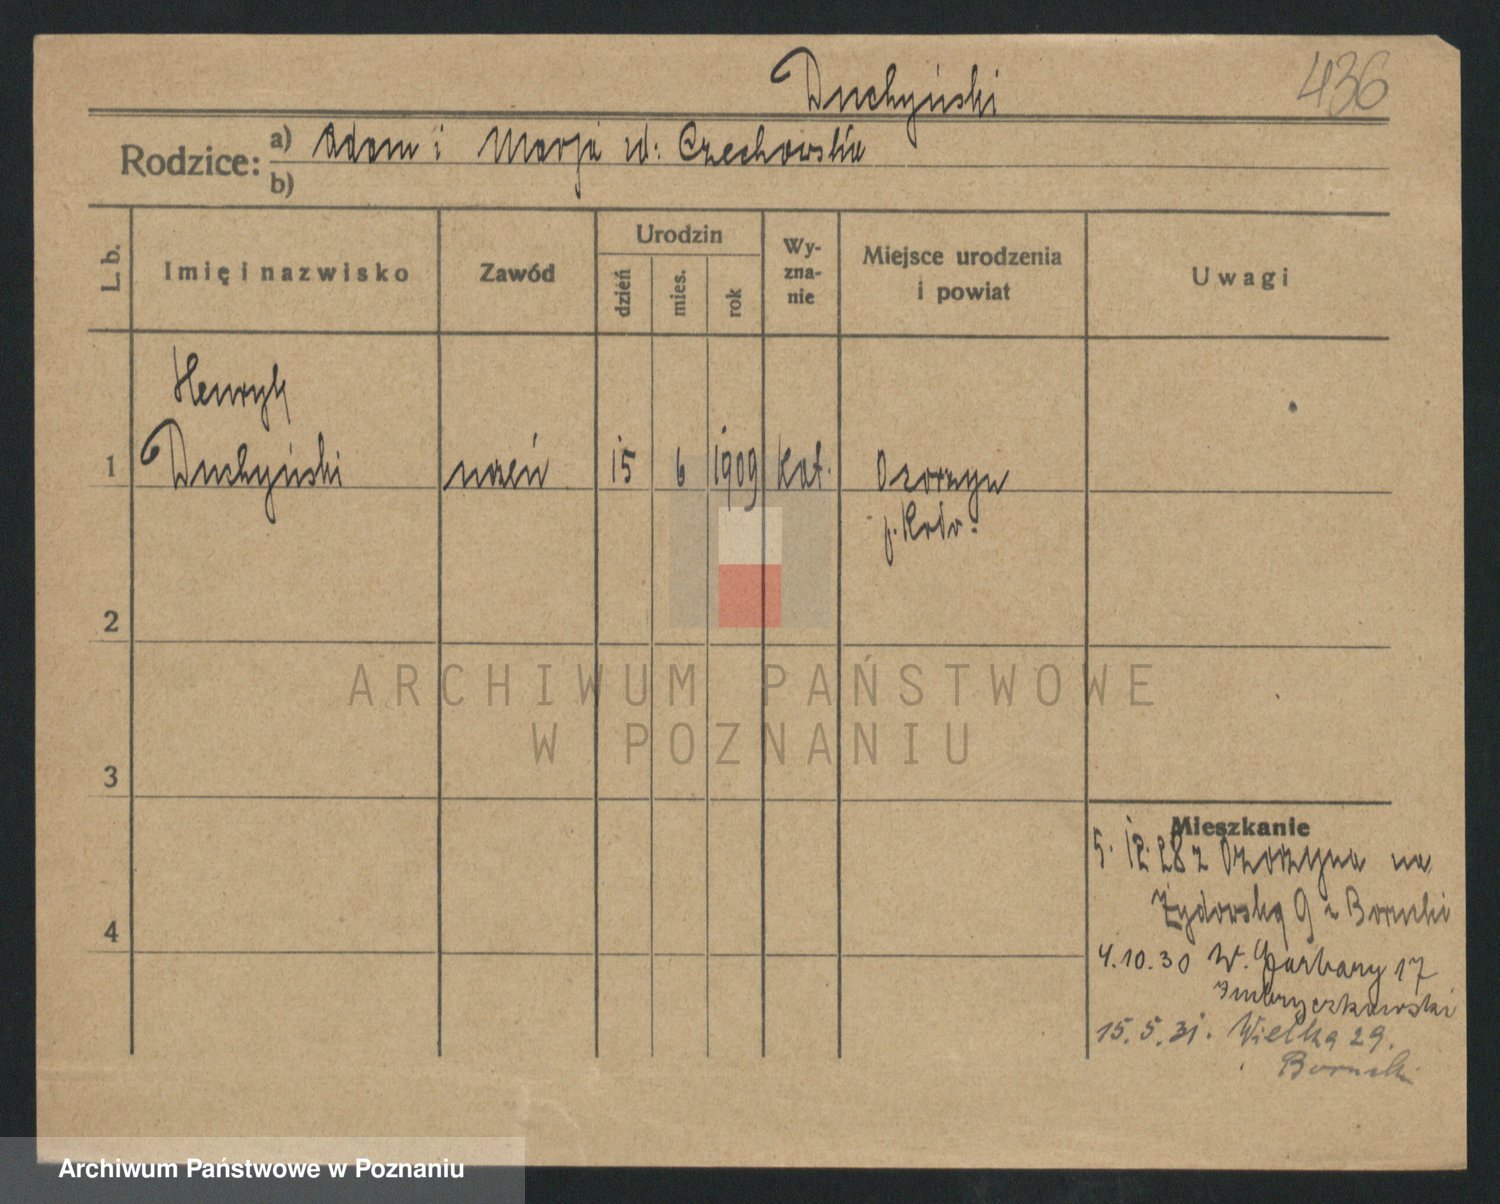 Duchyński
436
Rodzice:
a) Adam i Marja id: Czechowska
b)
L. b.
Imię i nazwisko
Zawód
Urodzin
dzień
mies.
rok
Wy-
zna-
nie
Miejsce urodzenia
i powiat
Uwagi
Henryk
1 Duchyński uczeń 15 6 1909 kat. Ozorzyn
p. Koło.
2
ARCHIWUM PAŃSTWOWE
W POZNANIU
3
Mieszkanie
5. 12. 28 z Ozorzyna na
Żydowską 9 z Borucki
4
4.10.30 W. Garbary 17
15.5.31. Wielka 29.
Borucki
Archiwum Państwowe w Poznaniu